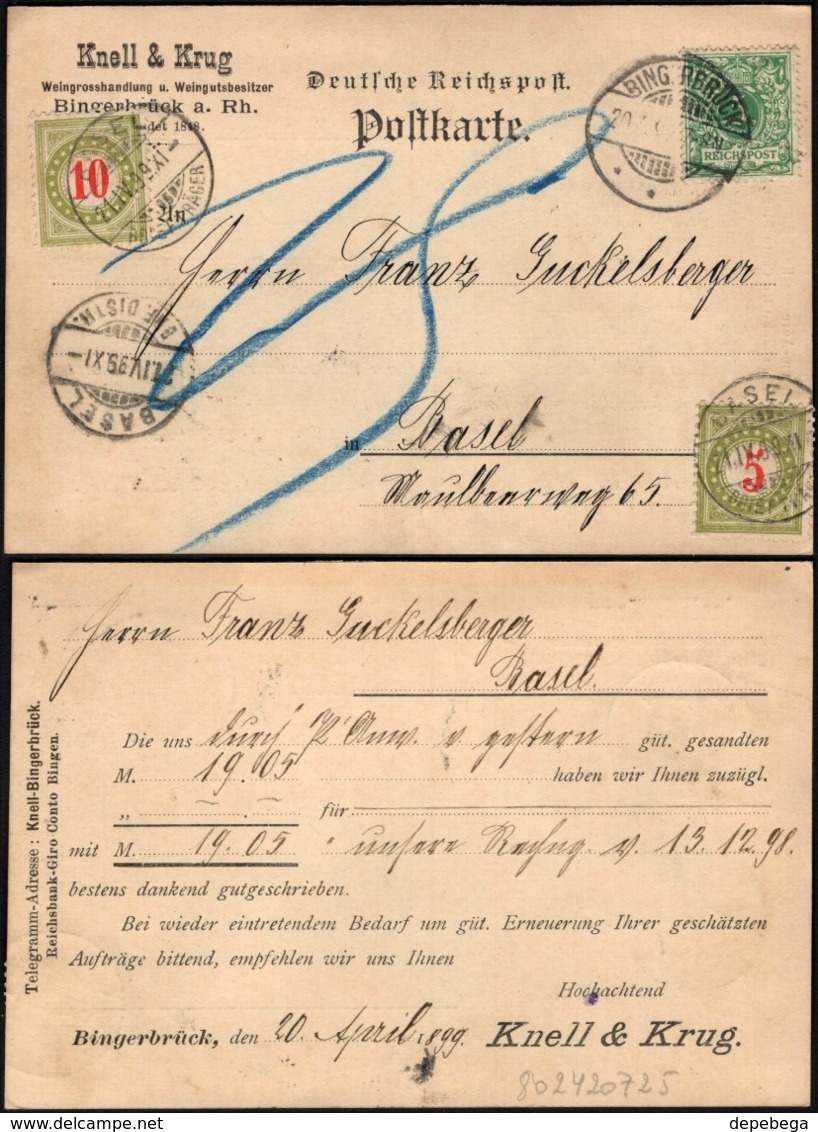 Knell & Krug
Weingrosshandlung u. Weingutsbesitzer
Bingerbrück a. Rh.
Deutsche Reichspost.
Postkarte.
BINGERBRÜCK
REICHSPOST
10
An
Herrn Franz Guckelsberger
BASEL
in Basel
Maulbeerweg 65.
BASEL
5
Herrn Franz Guckelsberger
Basel.
Die uns durch P. Anw. v. gestern güt. gesandten
M. 19.05 haben wir Ihnen zuzügl.
„ — . — für
mit M. 19.05 " unsere Rechng. v. 13.12.98.
bestens dankend gutgeschrieben.
Bei wieder eintretendem Bedarf um güt. Erneuerung Ihrer geschätzten
Aufträge bittend, empfehlen wir uns Ihnen
Hochachtend
Bingerbrück, den 20. April 1899. Knell & Krug.
Telegramm-Adresse: Knell-Bingerbrück.
Reichsbank-Giro Conto Bingen.
802420725
delcampe.net
depebega